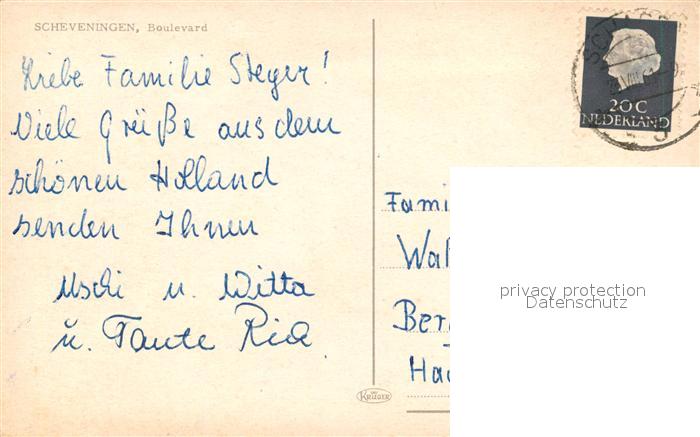 SCHEVENINGEN, Boulevard
Liebe Familie Steyer!
Viele Grüße aus dem
schönen Holland
senden Ihnen
Uschi u. Witta
u. Tante Ria.
20C
NEDERLAND
Fami
Wal
Ber
Ha
KRÜGER
privacy protection
Datenschutz